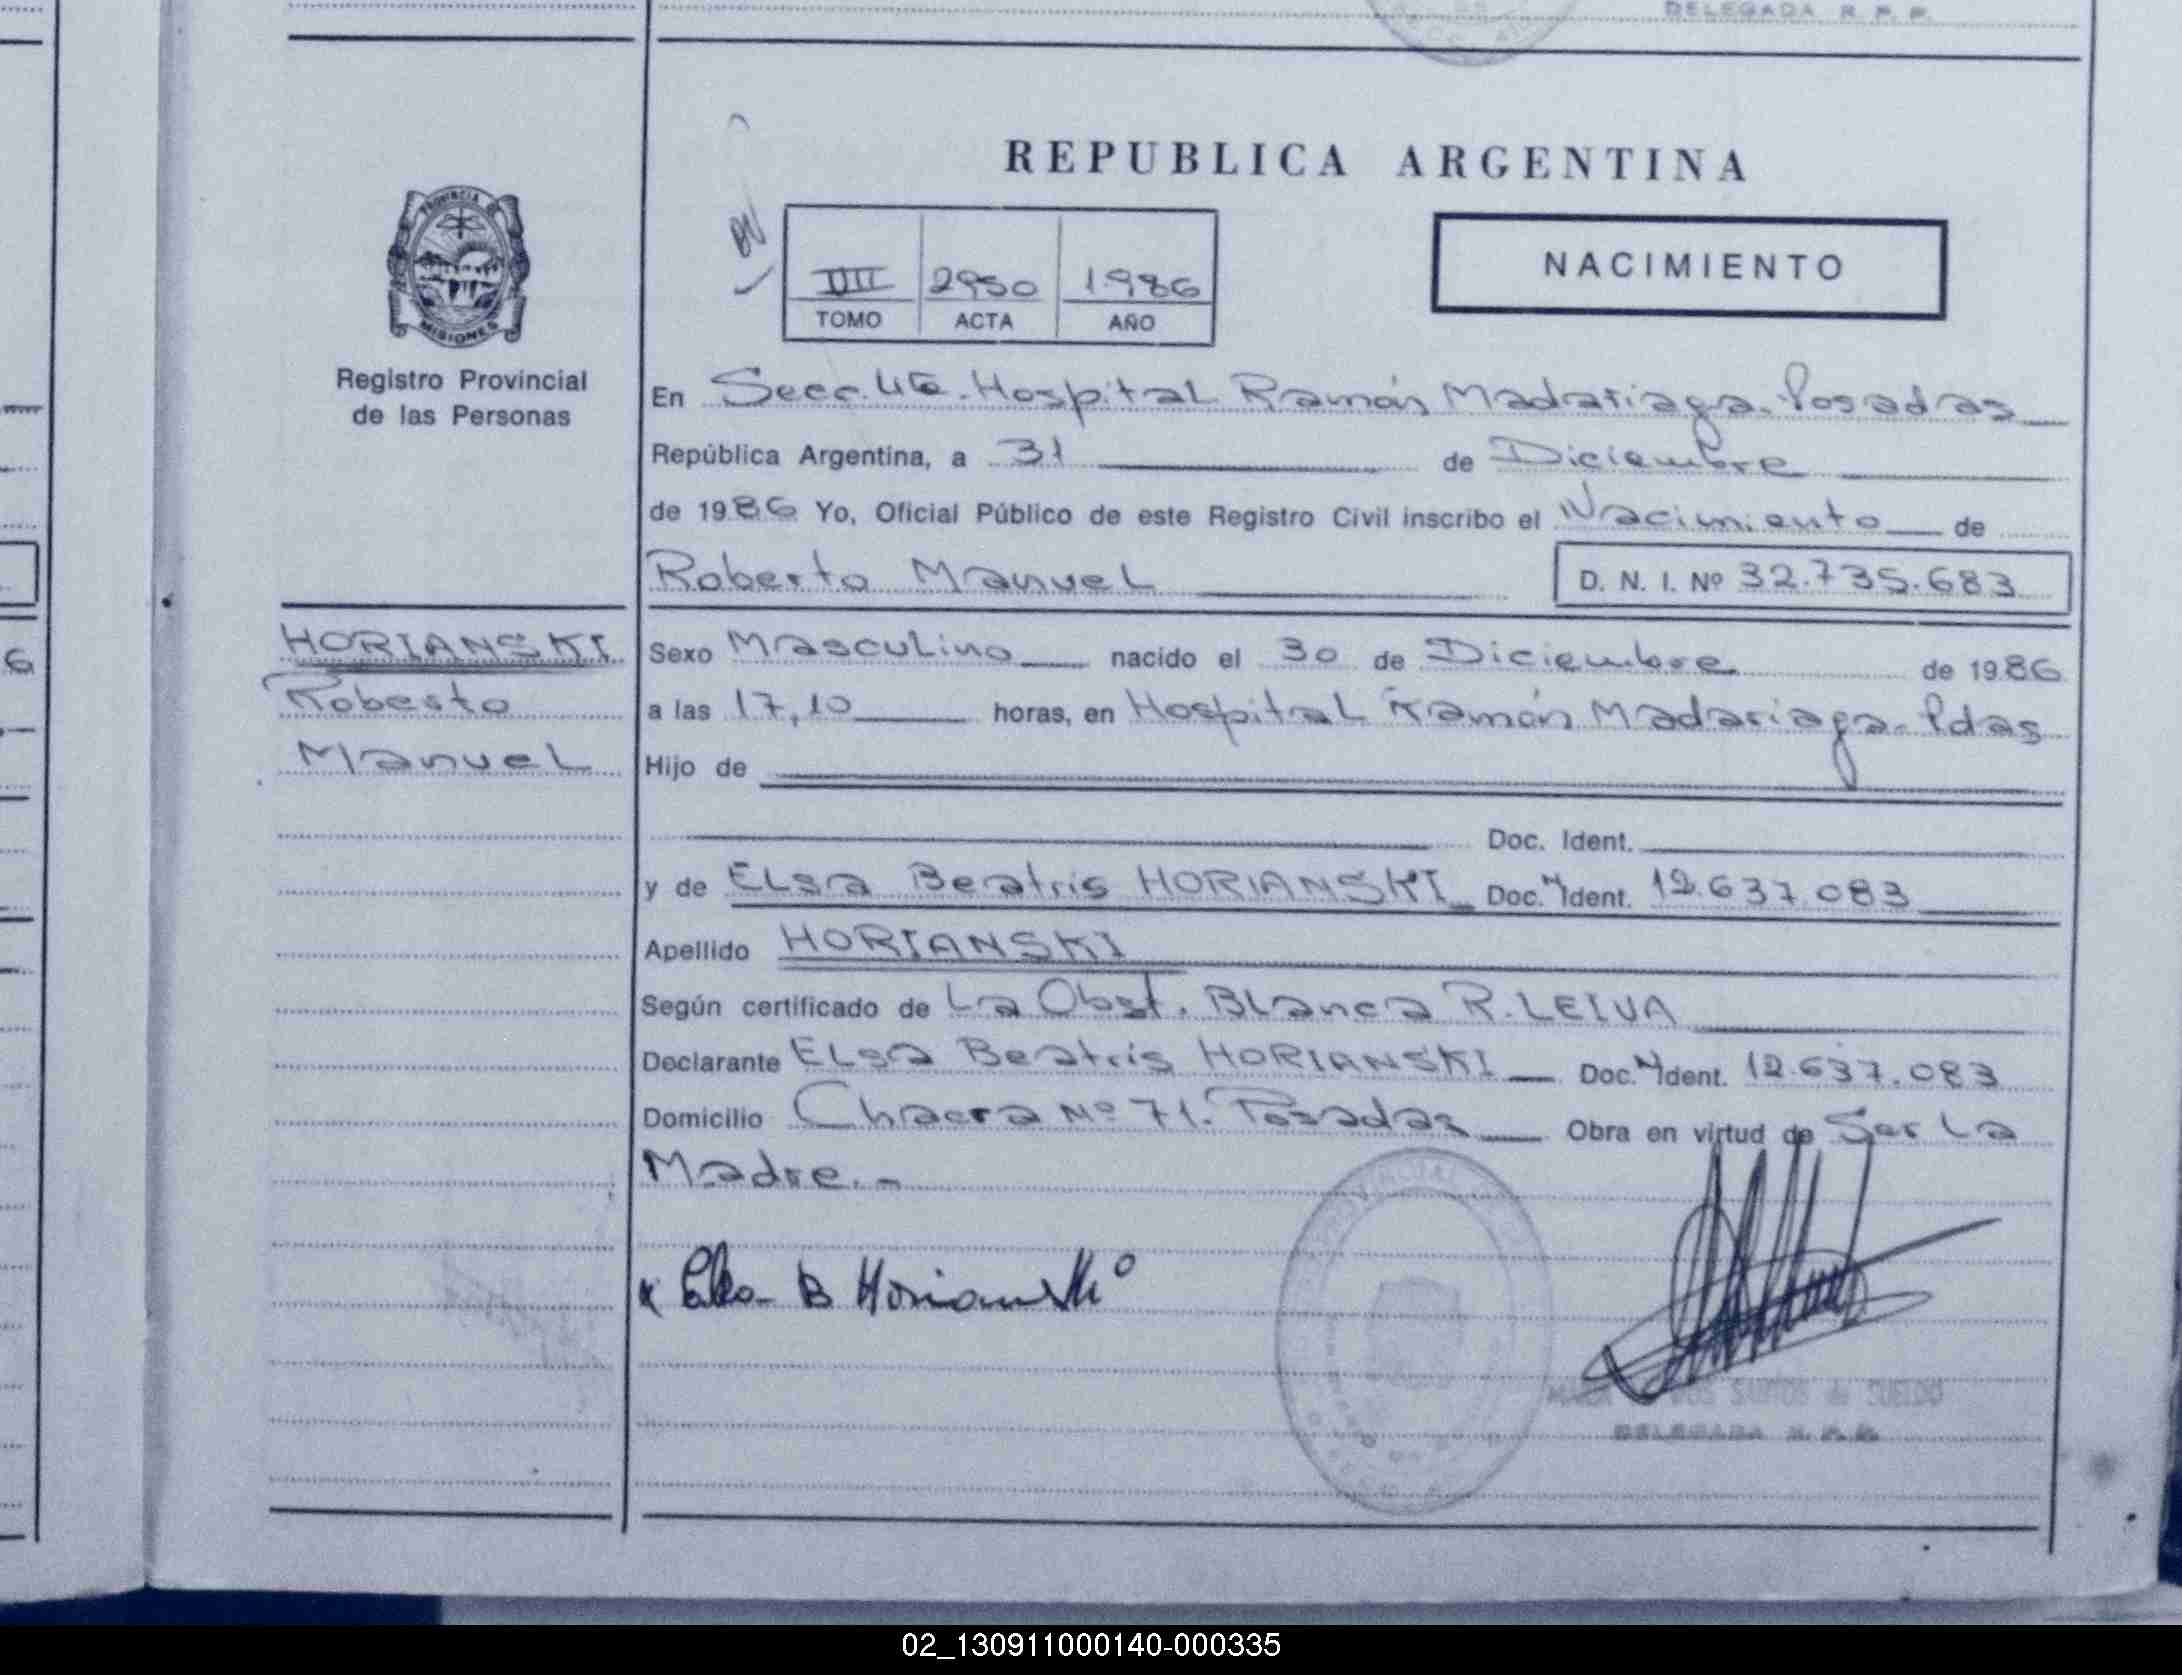 DELEGADA R. P. P.
REPUBLICA ARGENTINA
PROVINCIA DE
MISIONES
Registro Provincial
de las Personas
2950 1986
TOMO ACTA AÑO
NACIMIENTO
En Secc. 4ta. Hospital Ramón Madariaga. Posadas
República Argentina, a 31 de Diciembre
de 1986 Yo, Oficial Público de este Registro Civil inscribo el Nacimiento de
Roberto Manuel D. N. I. Nº 32.735.683
HORIANSKI
Roberto
Manuel
Sexo Masculino nacido el 30 de Diciembre de 1986
a las 17,10 horas, en Hospital Ramón Madariaga. Pdas
Hijo de
Doc. Ident.
y de ELsa Beatris HORIANSKI Doc. Ident. 12.637.083
Apellido HORIANSKI
Según certificado de La Obst. Blanca R. LEIVA
Declarante ELsa Beatris HORIANSKI Doc. Ident. 12.637.083
Domicilio Chacra Nº 71. Posadas Obra en virtud de Ser La
Madre.-
x Elsa B Horianski
DOS SANTOS de SUELDO
DELEGADA R. P. P.
02_130911000140-000335